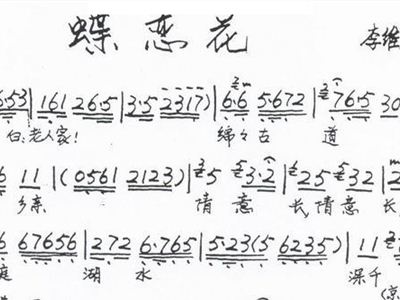 蝶恋花
李维
6·53|161 26·5|3·5 2317)|6·6 5·672|76·5 30
白:老人家! 绵々古道
6 11|(0561 2123)|5 3·2|25 32|2
乡亲 情意 长,情意 长,
6 67656|272 6·765|5·23(5 6235)|11
庭 湖 水 深千
(京